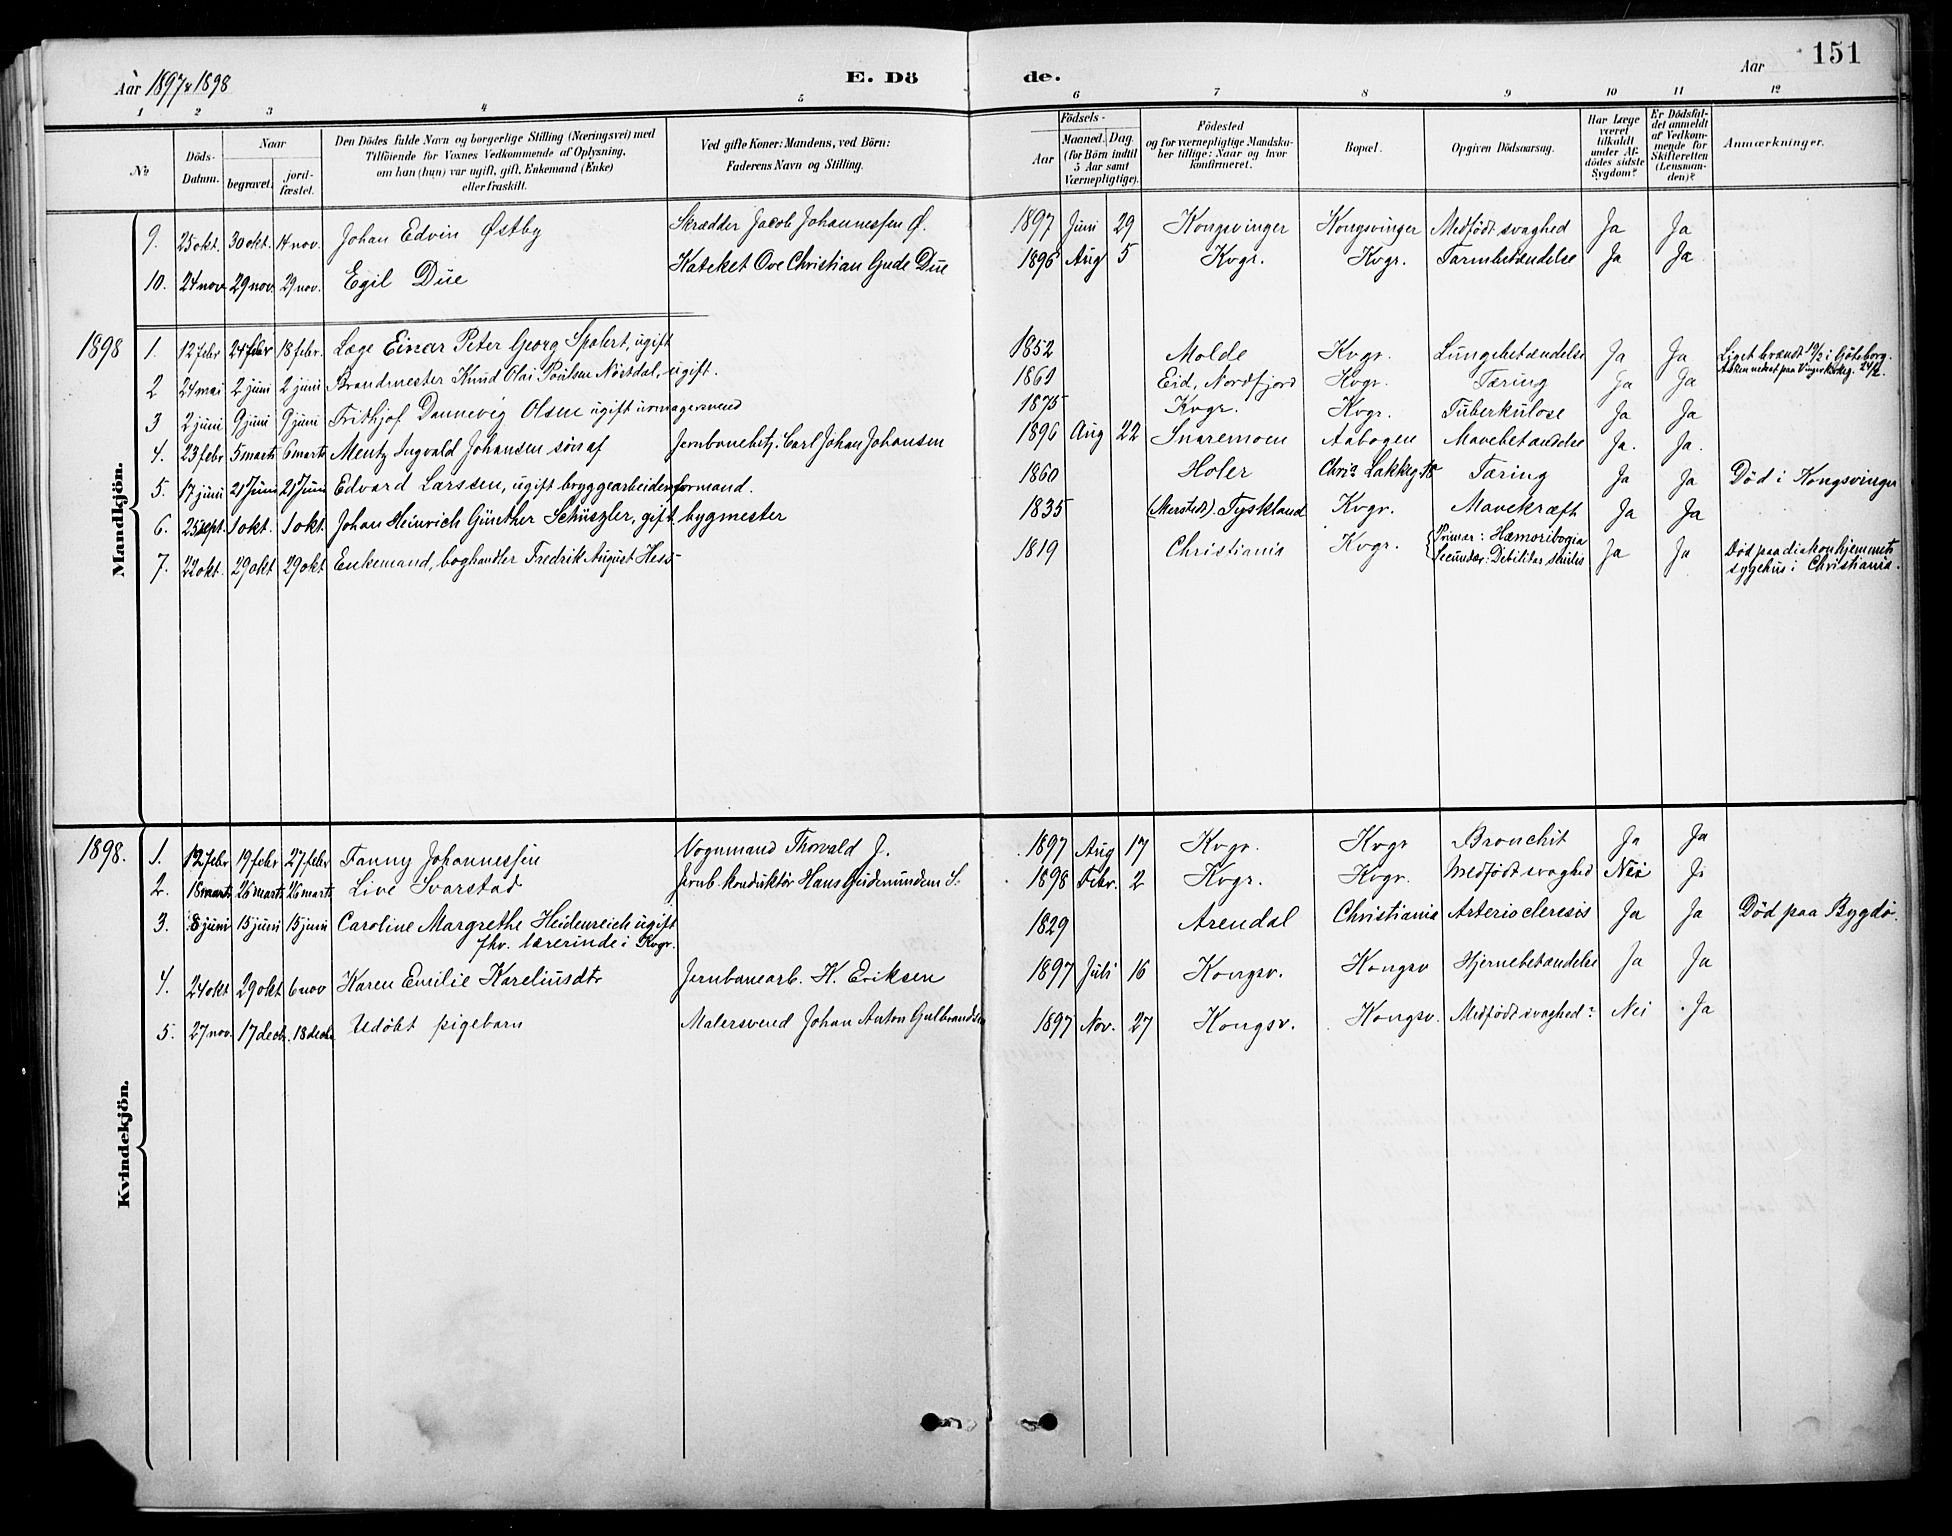 Aar 1897 & 1898 E. Dö
de. Aar 151
1 2 3 4 5 6 7 8 9 10 11 12
No Döds-Datum. Naar begravet. jord-fæstet. Den Dödes fulde Navn og borgerlige Stilling (Næringsvei) med Tilföiende for Voxnes Vedkommende af Oplysning, om han (hun) var ugift, gift, Enkemand (Enke) eller fraskilt. Ved gifte Koner: Mandens, ved Börn: Faderens Navn og Stilling. Födsels- Aar Maaned. Dag. (for Börn indtil 5 Aar samt Værnepligtige). Födested og for værnepligtige Mandskaber tillige: Naar og hvor konfirmeret. Bopæl. Opgiven Dödsaarsag. Har Læge været tilkaldt under Afdödes sidste Sygdom? Er Dödsfaldet anmeldt af Vedkommende for Skifteretten (Lensmanden)? Anmærkninger.
Mandkjön.
9. 25 okt. 30 okt. 14 nov. Johan Edvin Østby Skrædder Jacob Johannessen Ø. 1897 Juni 29 Kongsvinger Kongsvinger Medfødt svaghed Ja Ja
10. 24 nov 29 nov. 29 nov. Egil Due Kateket Ove Christian Gude Due 1896 Aug 5 Kvgr. Kvgr. Tarmbetændelse Ja Ja
1898 1. 12 febr 24 febr 18 febr. Læge Einar Peter Georg Spalert, ugift 1852 Molde Kvgr. Lungebetændelse Ja Ja Liget brændt 19/2 i Göteborg.
Asken nedsat paa Vinger kirkeg. 24/2.
2 24 mai 2 juni 2 juni Brandmester Knud Olai Poulsen Nøstdal, ugift. 1860 Eid, Nordfjord Kvgr. Tæring Ja Ja
3 2 juni 9 juni 9 juni Frithjof Dannevig Olsen ugift urmagersvend 1875 Kvgr. Kvgr. Tuberkulose Ja Ja
4. 23 febr 5 marts 6 marts Mentz Ingvald Johansen søn af Jernbanebetj. Carl Johan Johansen 1896 Aug 22 Snaremoen Aabogen Mavebetændelse Ja. Ja.
5. 17 juni 21 Juni 21 Juni Edvard Larssen, ugift bryggearbeiderformand. 1860 Holer Chri⁠a Lakkeg. Tæring Ja Ja Død i Kongsvinger
6. 25 sept. 1 okt. 1 okt. Johan Heinrich Günther Schüszler, gift bygmester 1835 (Merstedt). Tyskland Kvgr. Mavekræft Ja Ja
7. 22 okt. 29 okt 29 okt Enkemand, boghandler Fredrik August Hess 1819 Christiania Kvgr. Primær: Hæmoribogia
Secundær: Debilitas senilis Ja Ja Død paa diakonhjemmets
sygehus i Christiania.
Kvindekjön.
1898. 1. 12 febr 19 febr 27 febr Fanny Johannessen Vognmand Thorvald J. 1897 Aug 17 Kvgr. Kvgr Bronchit Ja Ja
2. 18 marts 26 marts 26 marts Live Svarstad Jernb. konduktør Hans Gudmundsen S. 1898 Febr. 2 Kvgr. Kvgr. Medfødt svaghed Nei Ja
3. 8 juni 15 juni 15 juni Caroline Margrethe Heidenreich ugift
fhv. lærerinde i Kvgr. 1829 Arendal Christiania Arterioscleresis Ja Ja Død paa Bygdø.
4. 24 okt 29 okt 6 nov Karen Emilie Kareliusdtr Jernbanearb. K. Eriksen 1897 Juli 16 Kongsv. Kongsv Hjernebetændelse Ja Ja
5. 27 nov. 17 decbr. 18 decbr Udøbt pigebarn Malersvend Johan Anton Gulbrandsen 1897 Nov. 27 Kongsv. Kongsv. Medfødt svaghed? Nei Ja